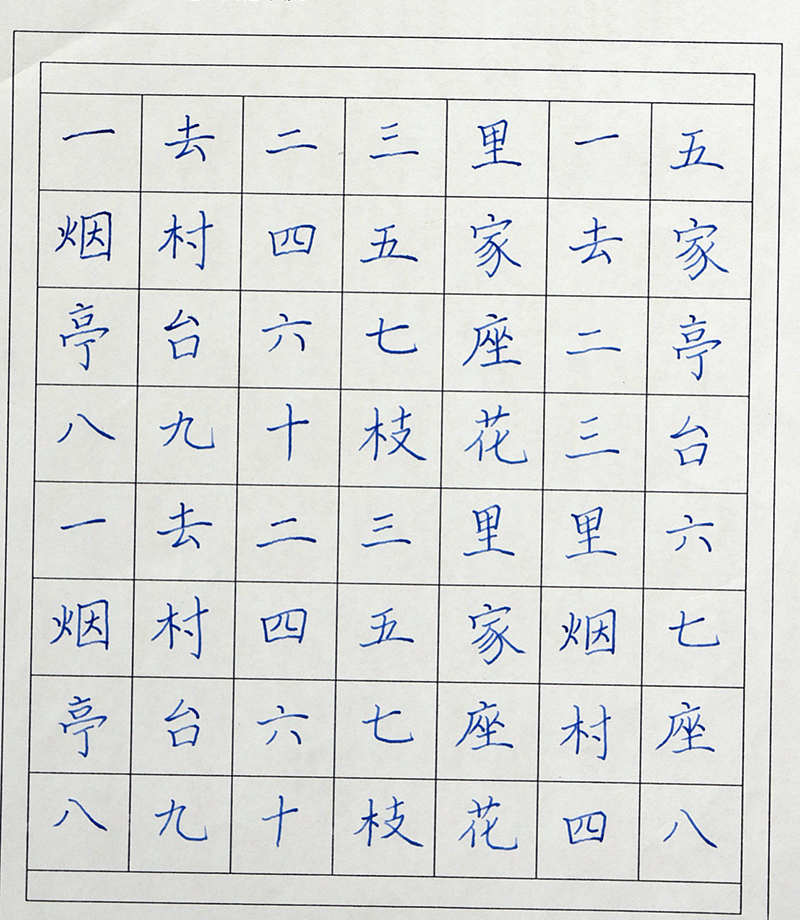 一去二三里一五
烟村四五家去家
亭台六七座二亭
八九十枝花三台
一去二三里里六
烟村四五家烟七
亭台六七座村座
八九十枝花四八